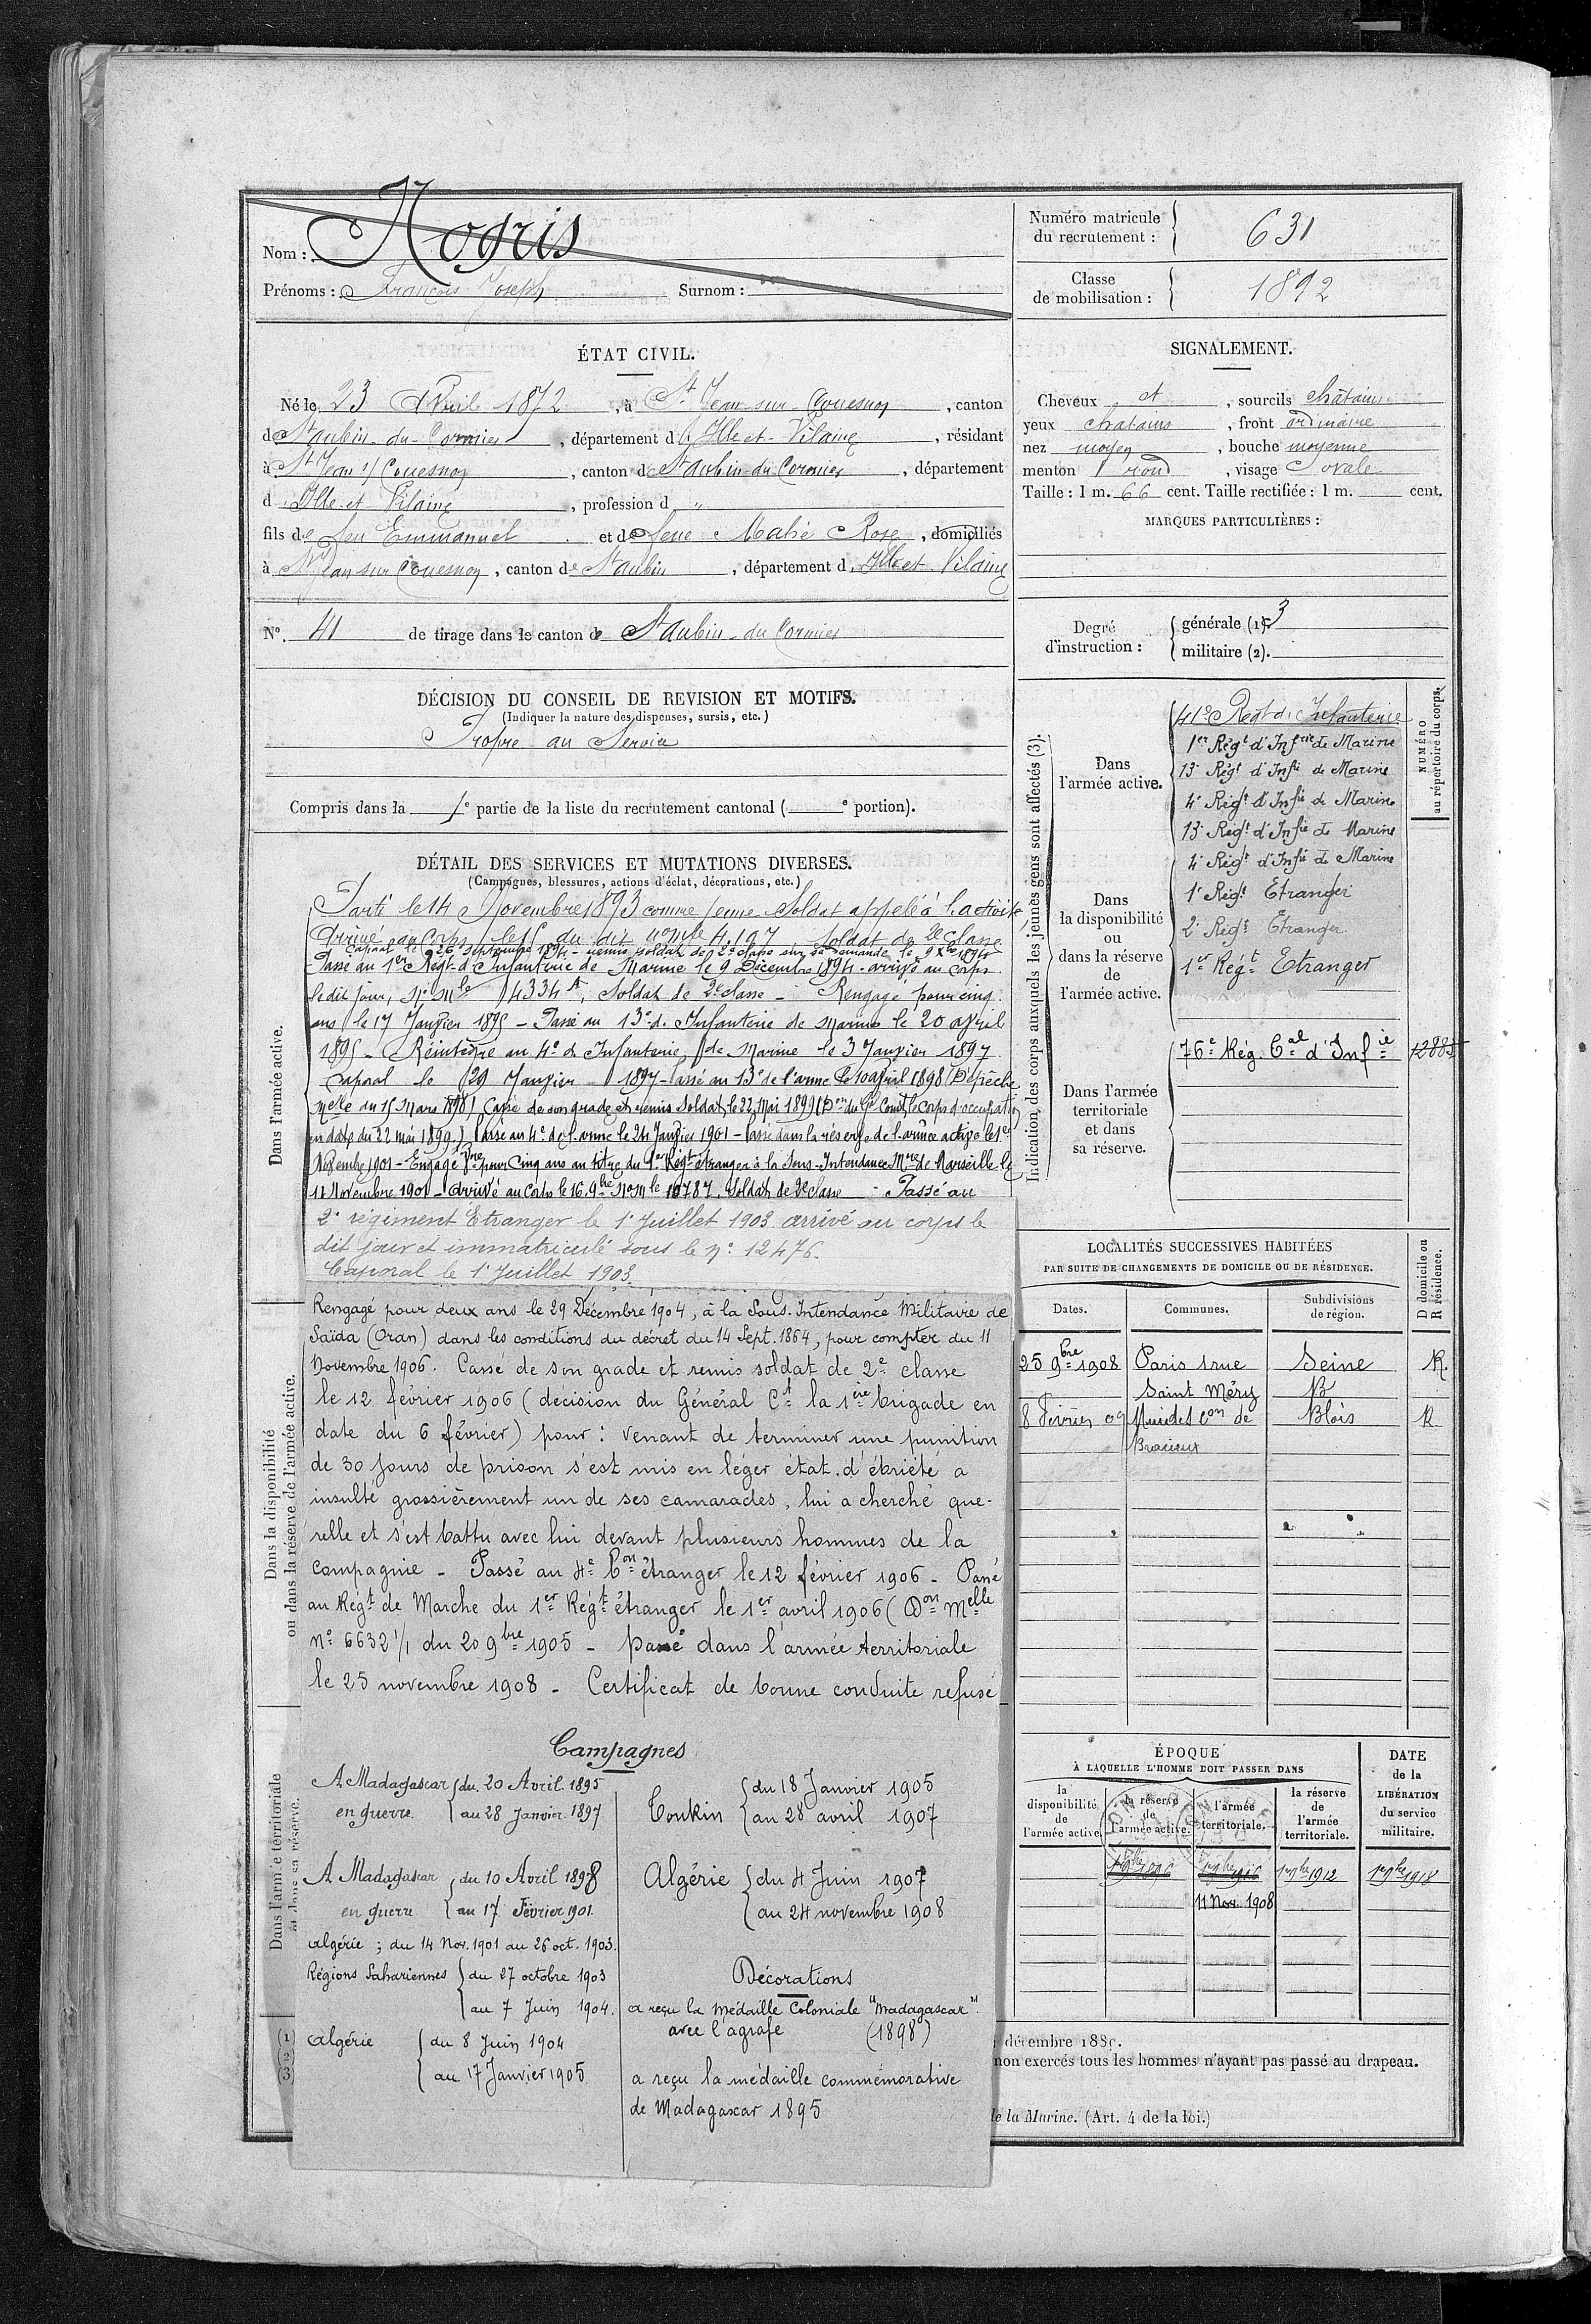 Nom : Nogris
Prénoms : François Joseph Surnom :
ÉTAT CIVIL.
Né le 23 Avril 1872, à St Jean-sur-Couesnon, canton
de St aubin-du-Cormier, département d'Ille-et-Vilaine, résidant
à St Jean s/ Couesnon, canton de St aubin-du-Cormier, département
d'Ille-et-Vilaine, profession d "
fils de feu Emmanuel et de feue Mahé Rose, domiciliés
à St Jean sur Couesnon, canton de St aubin, département d'Ille et Vilaine
N° 41 de tirage dans le canton de St Aubin-du Cormier
DÉCISION DU CONSEIL DE REVISION ET MOTIFS.
(Indiquer la nature des dispenses, sursis, etc.)
Propre au Service
Compris dans la 1e partie de la liste du recrutement cantonal ( e portion).
DÉTAIL DES SERVICES ET MUTATIONS DIVERSES.
(Campagnes, blessures, actions d'éclat, décorations, etc.)
Dans l'armée active.
Parti le 14 Novembre 1893 comme jeune Soldat appelé à l'activité
Arrivé au Corps le 15 du dit nomle 4,107 soldat de 2e classe
Caporal le 26 septembre 1894 - remis soldat de 2e classe sur sa demande le 9 Xbre 1894
Passé au 1er Régt d'Infanterie de Marine le 9 Décembre 1894 - arrivé au corps
le dit jour, No Mle 14334 A, Soldat de 2e classe - Rengagé pour cinq
ans le 17 Janvier 1895 - Passé au 13e d'Infanterie de Marine le 20 avril
1895 - Réintégré au 4e d'Infanterie de Marine le 3 Janvier 1897
Caporal le 29 Janvier 1897 - Passé au 13e de l'arme le 10 avril 1898 (Dépêche
Melle du 15 Mars 1898) Cassé de son grade et remis Soldat le 22 Mai 1899 (Don du Gl Comt le Corps d'occupation
en date du 22 mai 1899.) Passé au 4e de l'arme le 24 Janvier 1901 - Passé dans la réserve de l'armée active le 1er
Novembre 1901 - Engagé Vre pour Cinq ans au titre du 1er Régt étranger à la Sous-Intendance Mre de Marseille le
11 Novembre 1901 - Arrivé au Corps le 16 9bre No Mle 10787. Soldat de 2e classe - Passé au
2e régiment Etranger le 1er Juillet 1903 arrivé au corps le
dit jour et immatriculé sous le no 12476.
Caporal le 1er Juillet 1903.
Dans la disponibilité
ou dans la réserve de l'armée active.
Rengagé pour deux ans le 29 Décembre 1904, à la Sous-Intendance Militaire de
Saïda (Oran) dans les conditions du décret du 14 Sept. 1864, pour compter du 11
Novembre 1906. Cassé de son grade et remis soldat de 2e classe
le 12 février 1906 (décision du Général Ct la 1ère brigade en
date du 6 février) pour : venant de terminer une punition
de 30 jours de prison s'est mis en léger état d'ébriété a
insulté grossièrement un de ses camarades, lui a cherché que-
relle et s'est battu avec lui devant plusieurs hommes de la
compagnie - Passé au 4e Bon étranger le 12 février 1906 - Passé
au Régt de Marche du 1er Régt étranger le 1er avril 1906 (Don Melle
No 6632 1/1 du 20 9bre 1905 - passé dans l'armée territoriale
le 25 novembre 1908 - Certificat de bonne conduite refusé
Dans l'armée territoriale
et dans sa réserve.
Campagnes
A Madagascar du 20 Avril 1895
en guerre au 28 Janvier 1897
A Madagascar du 10 Avril 1898
en guerre au 17 Février 1901
algérie ; du 14 Nov. 1901 au 26 oct. 1903.
Régions Sahariennes du 27 octobre 1903
au 7 Juin 1904.
algérie du 8 Juin 1904
au 17 Janvier 1905
Tonkin du 18 Janvier 1905
au 28 avril 1907
Algérie du 4 Juin 1907
au 24 novembre 1908
Décorations
a reçu la médaille Coloniale "Madagascar"
avec l'agrafe (1898)
a reçu la médaille commémorative
de Madagascar 1895
(1)
(2)
(3)
Numéro matricule
du recrutement : 631
Classe
de mobilisation : 1892
SIGNALEMENT.
Cheveux et, sourcils châtains
yeux chatains, front ordinaire
nez moyen, bouche moyenne
menton rond, visage ovale
Taille : 1 m. 66 cent. Taille rectifiée : 1 m. cent.
MARQUES PARTICULIÈRES :
Degré
d'instruction :
générale (1). 3
militaire (2).
Indication des corps auxquels les jeunes gens sont affectés (3).
NUMÉRO
au répertoire du corps.
Dans
l'armée active.
41e Régt d'Infanterie
1er Régt d'Infrie de Marine
13e Régt d'Infie de Marine
4e Régt d'Infie de Marine
13e Régt d'Infie de Marine
4e Régt d'Infie de Marine
Dans
la disponibilité
ou
dans la réserve
de
l'armée active.
1er Régt Etranger
2e Régt Etranger
1er Régt Etranger
Dans l'armée
territoriale
et dans
sa réserve.
76e Rég. Cal d'Infie 12885
LOCALITÉS SUCCESSIVES HABITÉES
PAR SUITE DE CHANGEMENTS DE DOMICILE OU DE RÉSIDENCE.
Dates. Communes. Subdivisions
de région. D domicile ou
R résidence.
25 9bre 1908 Paris 1 rue Seine R.
Saint Méry B
8 Février 09 Muides Con de Blois R
Bracieux
ÉPOQUE
À LAQUELLE L'HOMME DOIT PASSER DANS
DATE
de la
LIBÉRATION
du service
militaire.
la
disponibilité
de
l'armée active.
la réserve
de
l'armée active.
l'armée
territoriale.
la réserve
de
l'armée
territoriale.
1er 9bre 1896 1er 9bre 1906 1er 9bre 1912 1er 9bre 1918
11 Nov. 1908
décembre 1889.
non exercés tous les hommes n'ayant pas passé au drapeau.
de la Marine. (Art. 4 de la loi.)